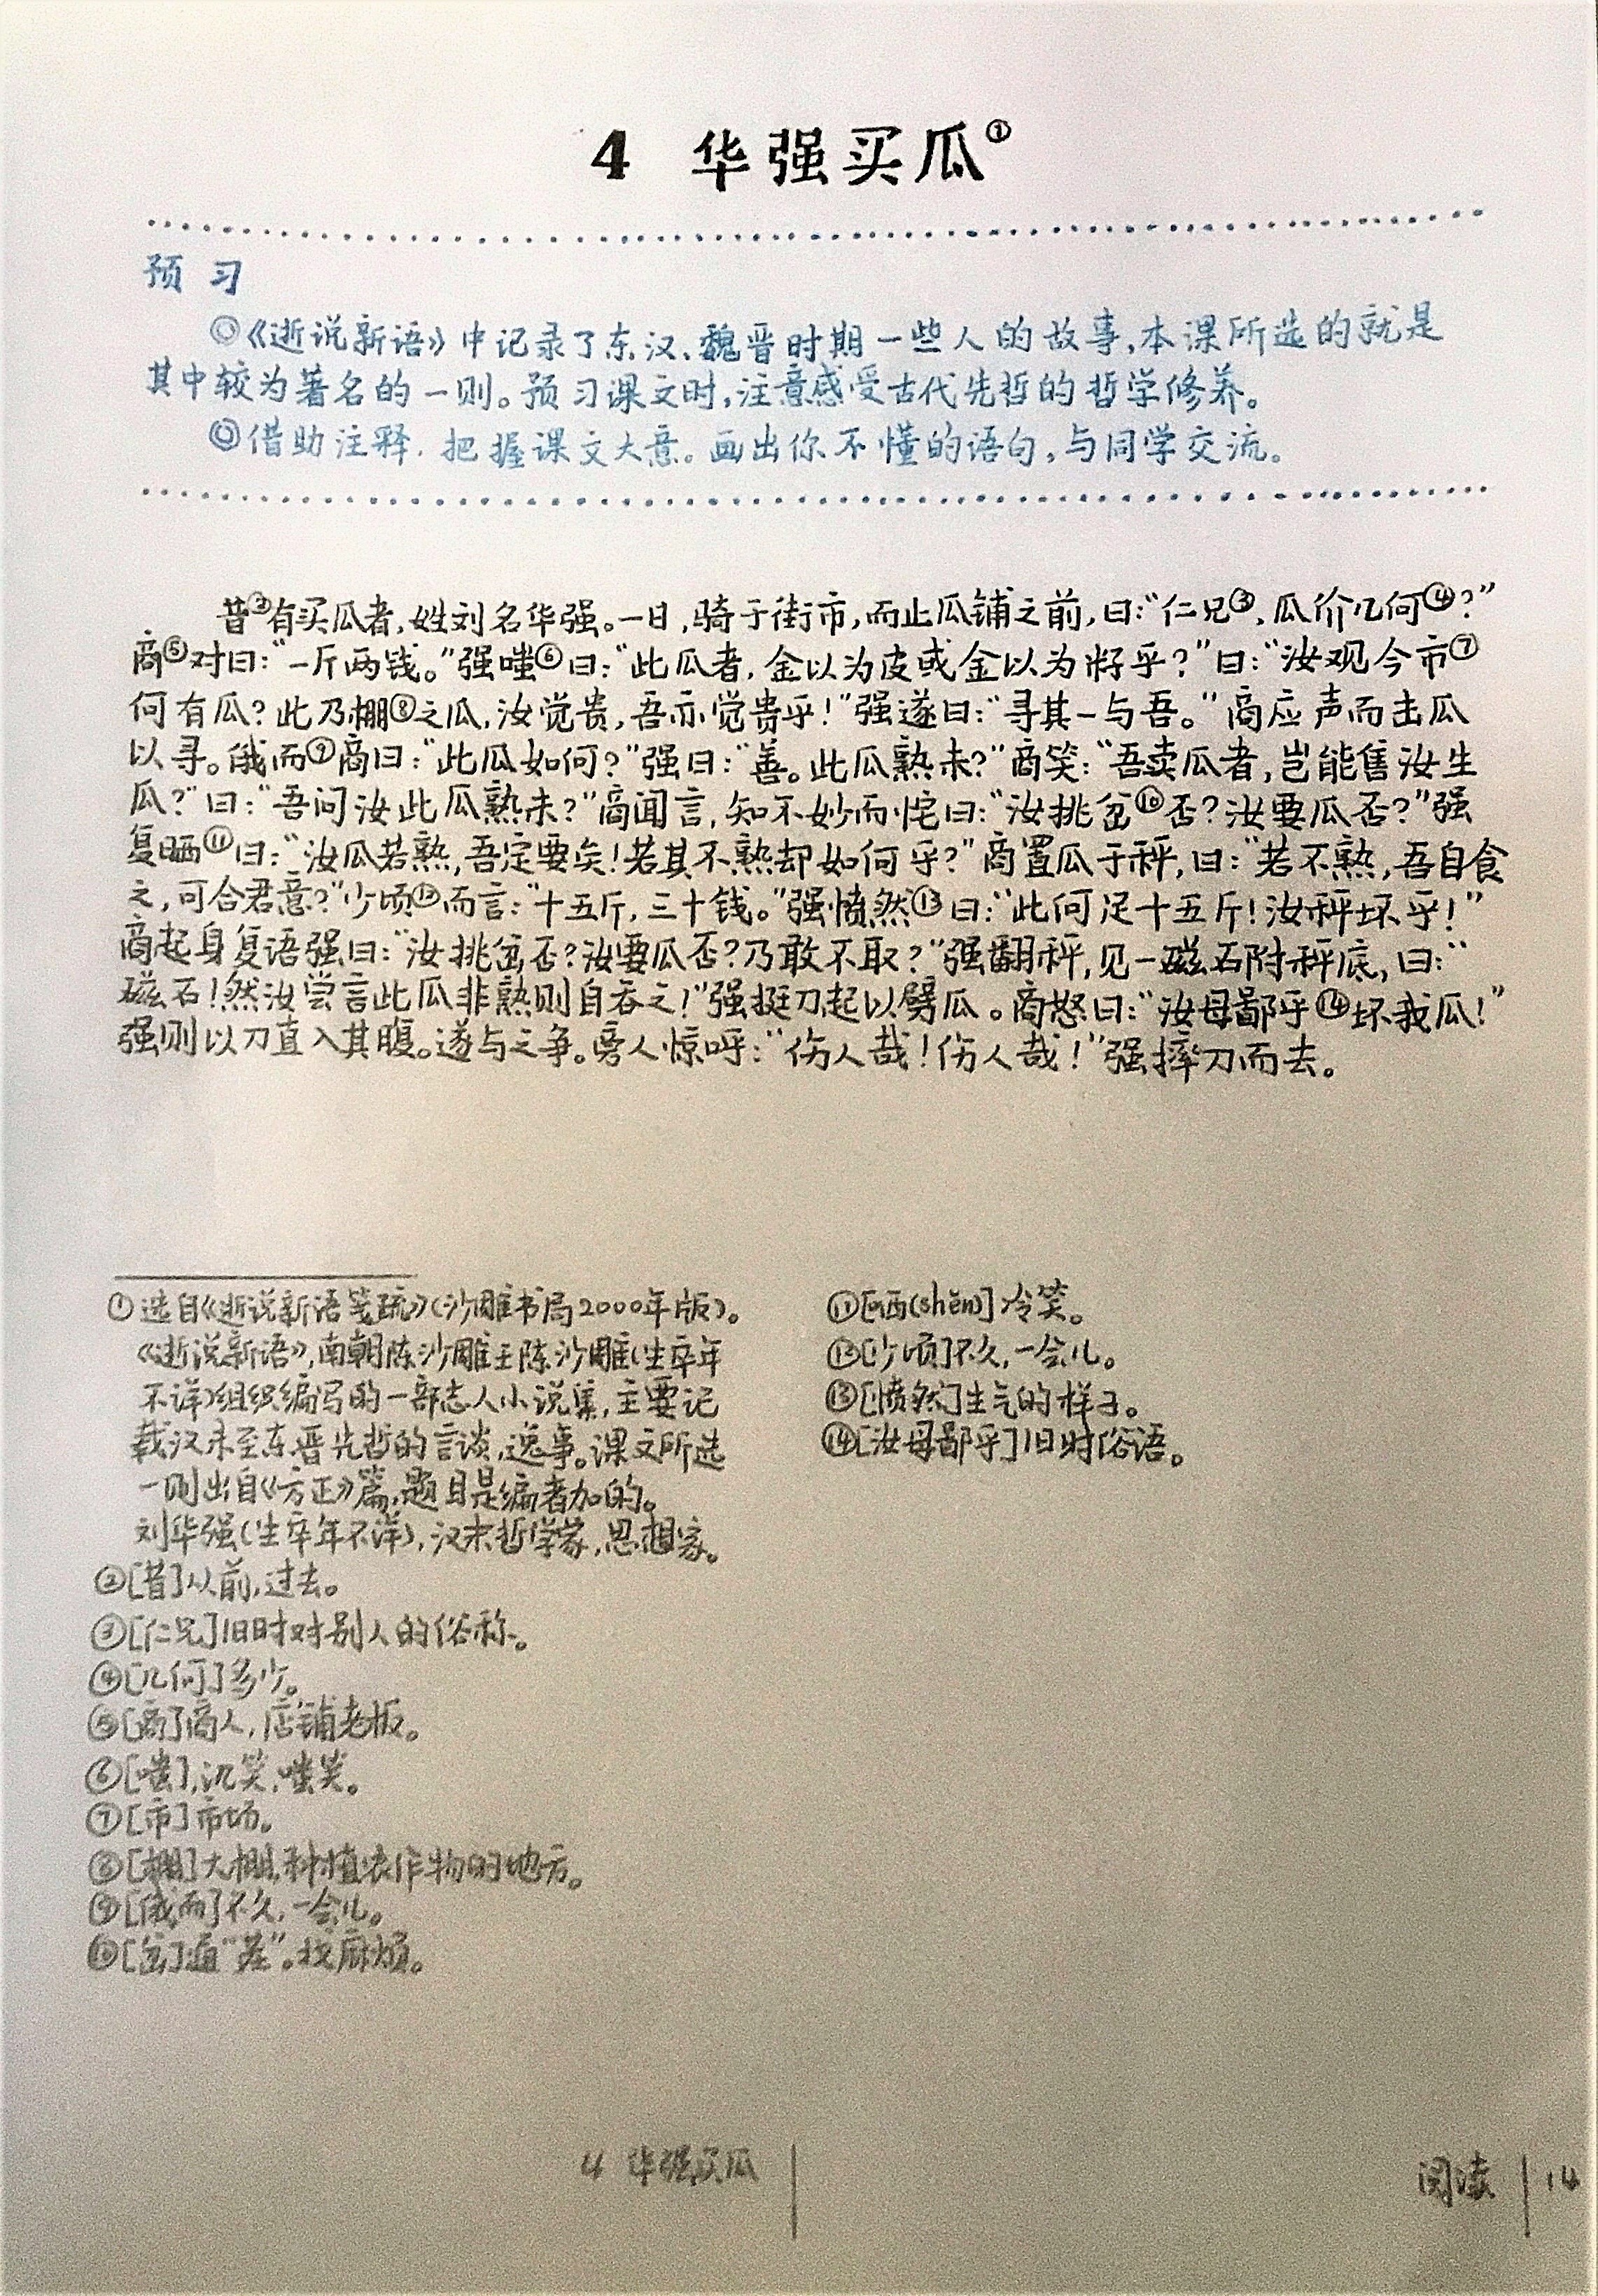 4 华强买瓜①
预 习
◎《逝说新语》中记录了东汉、魏晋时期一些人的故事,本课所选的就是
其中较为著名的一则。预习课文时,注意感受古代先哲的哲学修养。
◎借助注释,把握课文大意。画出你不懂的语句,与同学交流。
昔②有买瓜者,姓刘名华强。一日,骑于街市,而止瓜铺之前,曰:“仁兄③,瓜价几何④?”
商⑤对曰:“一斤两钱。”强嗤⑥曰:“此瓜者,金以为皮或金以为籽乎?”曰:“汝观今市⑦
何有瓜?此乃棚⑧之瓜,汝觉贵,吾亦觉贵乎!”强遂曰:“寻其一与吾。”商应声而击瓜
以寻。俄而⑨商曰:“此瓜如何?”强曰:“善。此瓜熟未?”商笑:“吾卖瓜者,岂能售汝生
瓜?”曰:“吾问汝此瓜熟未?”商闻言,知不妙而怅曰:“汝挑岔⑩否?汝要瓜否?”强
复哂⑪曰:“汝瓜若熟,吾定要矣!若其不熟却如何乎?”商置瓜于秤,曰:“若不熟,吾自食
之,可合君意?”少顷⑫而言:“十五斤,三十钱。”强愤然⑬曰:“此何足十五斤!汝秤坏乎!”
商起身复语强曰:“汝挑岔否?汝要瓜否?乃敢不取?”强翻秤,见一磁石附秤底,曰:“
磁石!然汝尝言此瓜非熟则自吞之!”强挺刀起以劈瓜。商怒曰:“汝母鄙乎⑭坏我瓜!”
强则以刀直入其腹。遂与之争。旁人惊呼:“伤人哉!伤人哉!”强摔刀而去。
①选自《逝说新语笺疏》(沙雕书局2000年版)。
《逝说新语》,南朝陈沙雕王陈沙雕(生卒年
不详)组织编写的一部志人小说集,主要记
载汉末至东晋先哲的言谈,逸事。课文所选
一则出自《方正》篇,题目是编者加的。
刘华强(生卒年不详),汉末哲学家,思想家。
②[昔]以前,过去。
③[仁兄]旧时对别人的俗称。
④[几何]多少。
⑤[商]商人,店铺老板。
⑥[嗤],讥笑,嗤笑。
⑦[市]市场。
⑧[棚]大棚,种植农作物的地方。
⑨[俄而]不久,一会儿。
⑩[岔]通“茬”。找麻烦。
⑪[哂(shěn)]冷笑。
⑫[少顷]不久,一会儿。
⑬[愤然]生气的样子。
⑭[汝母鄙乎]旧时俗语。
4 华强买瓜
阅读 14